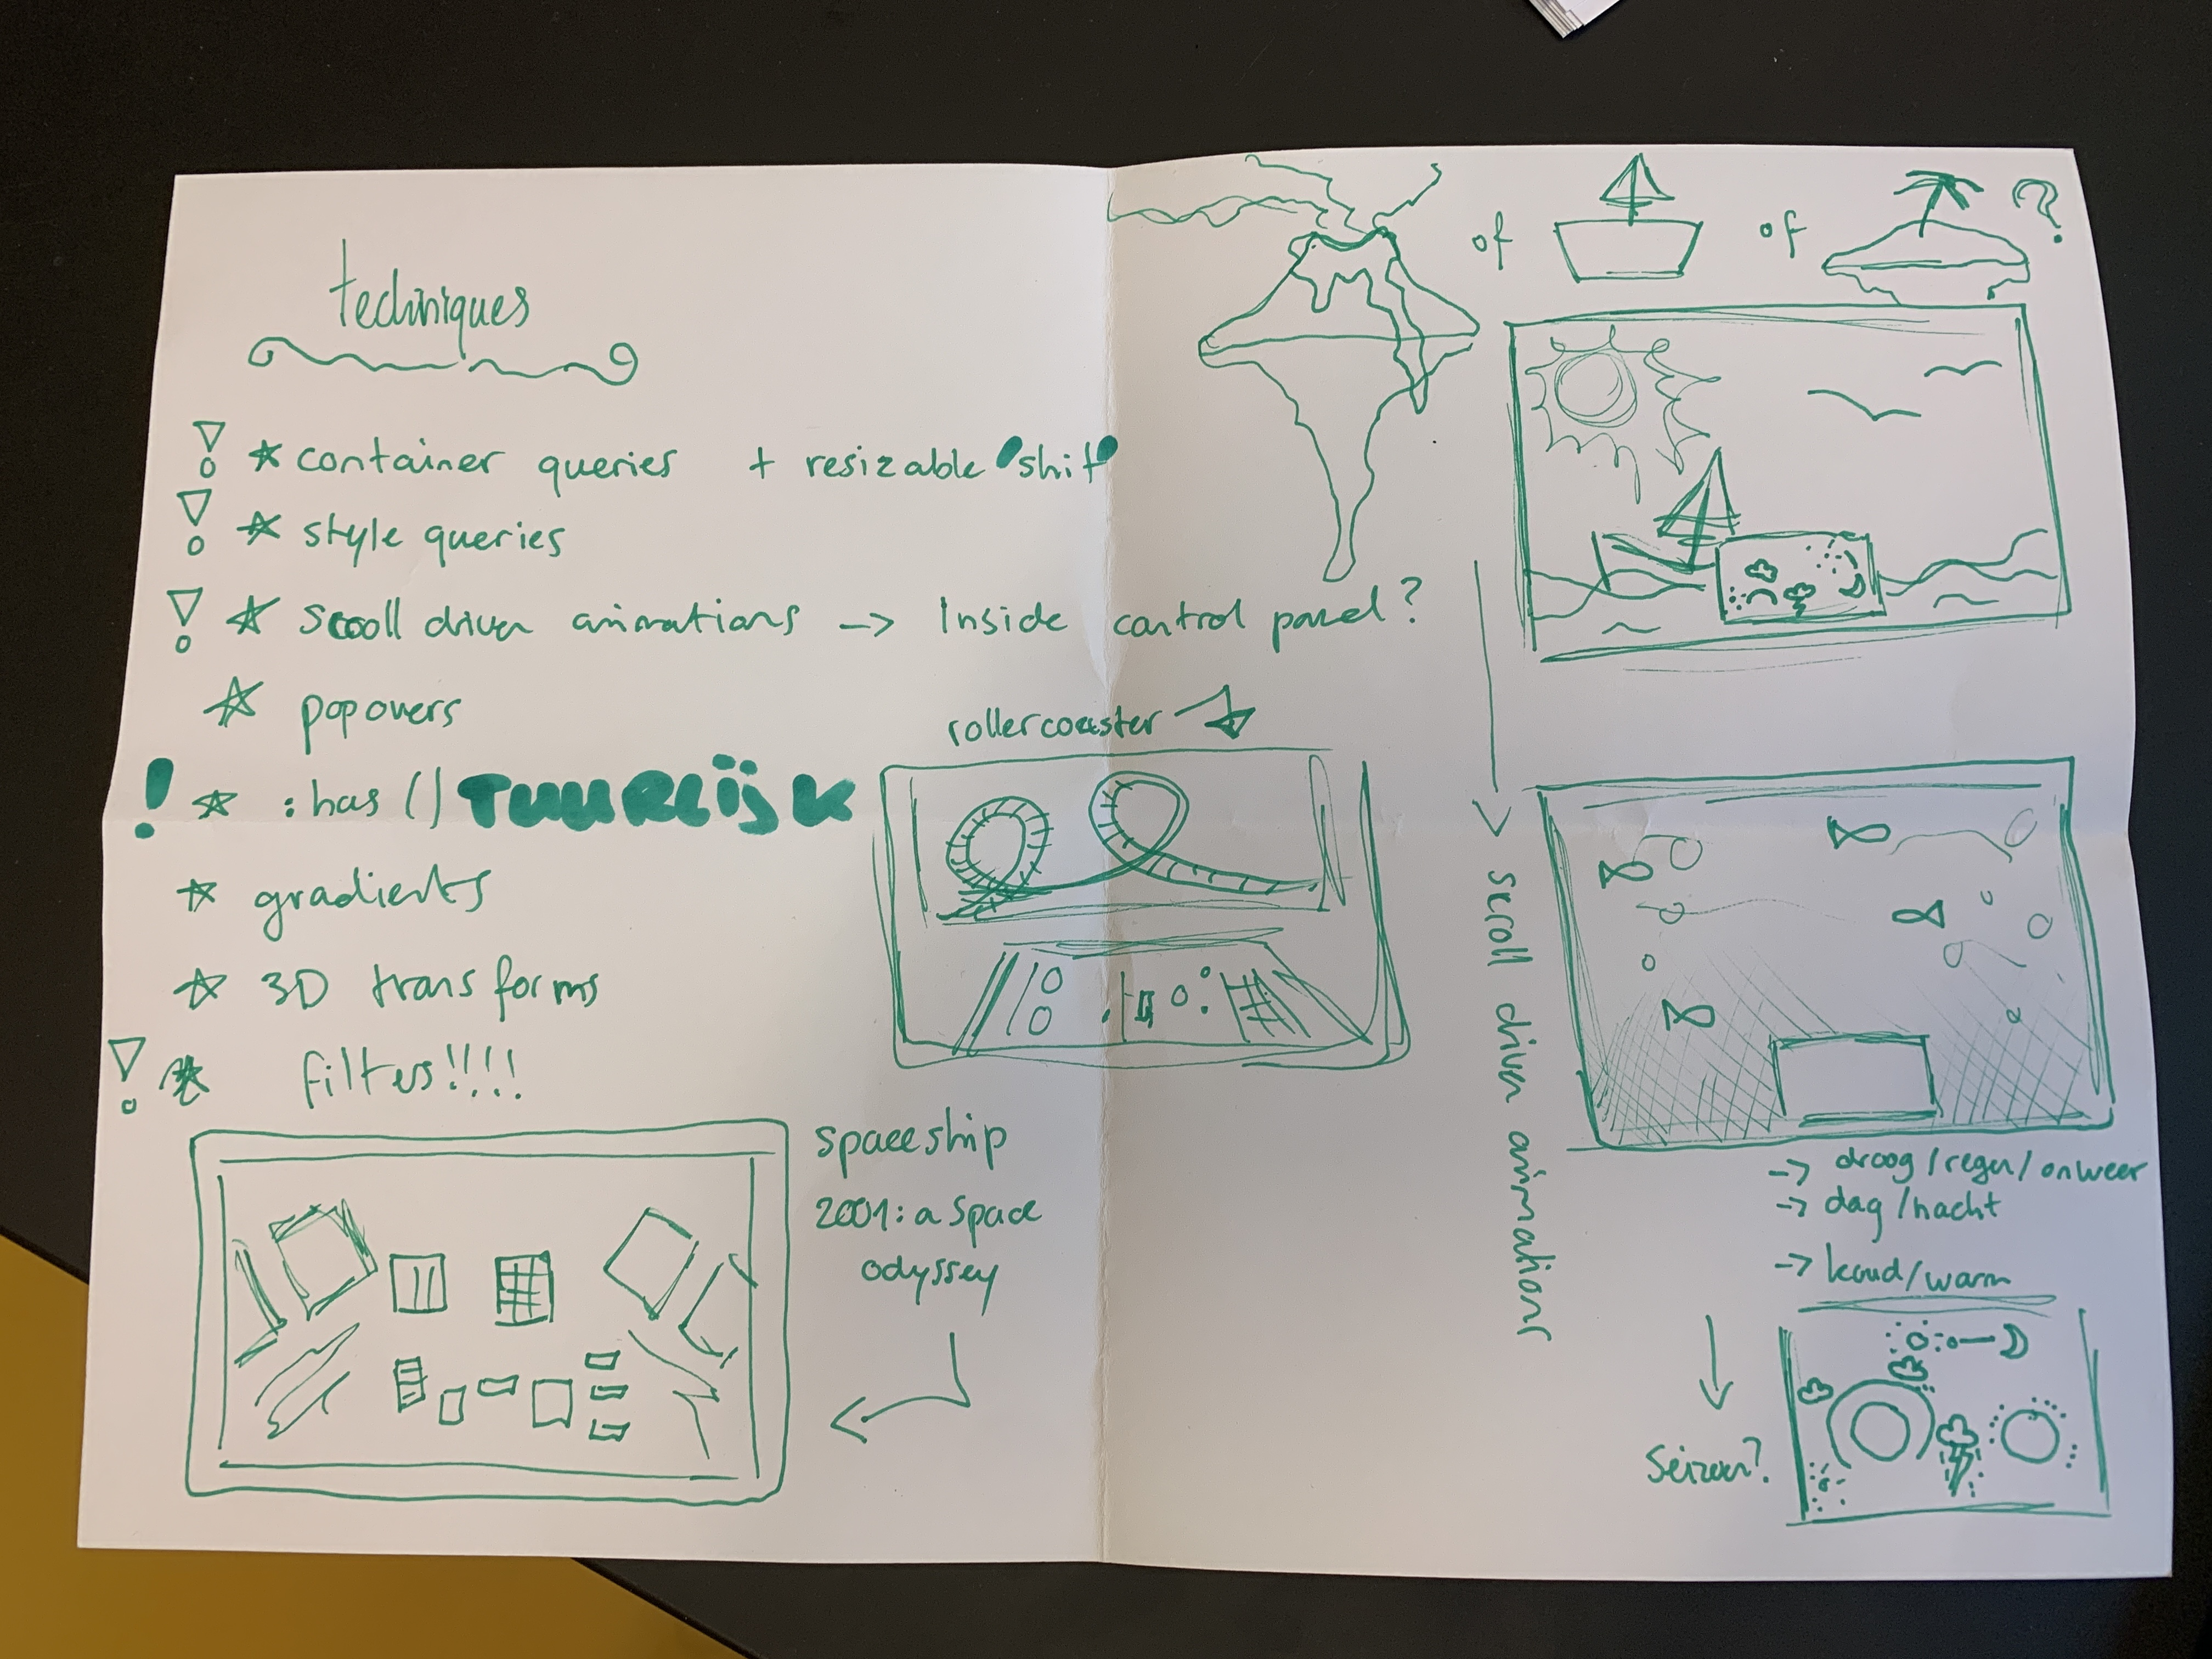 techniques
! * container queries + resizable 'shit'
! * style queries
! * Scooll driven animations -> Inside control panel?
* popovers
! * :has() TUURLIJK
* gradients
* 3D transforms
! * filters!!!!
of of ?
rollercoaster
spaceship
2001: a space
odyssey
scroll driven animations
-> droog/regen/onweer
-> dag/nacht
-> koud/warm
Seizoen?